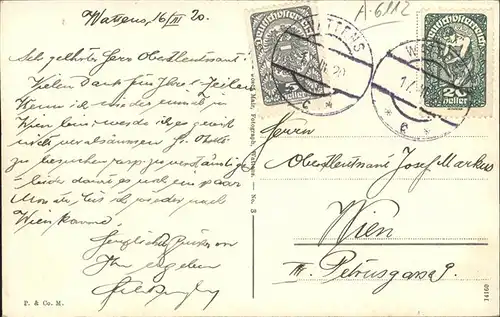 Wattens, 16/III 20.
A-6112
Sehr geehrter Herr Oberstleutnant!
Vielen Dank für Ihre Zeilen
Wenn ich wieder einmal in
Wien bin, werde ich es gewiß
nicht versäumen
zu besuchen resp. zu verständigen
leider dauert es noch ein paar
Monate, bis ich wieder nach
Wien komme.
Herzliche Grüße von
Ihrem ergebenen
P. & Co. M.
Photograph, Wattens. — No. 3
Deutschösterreich
5
Heller
WATTENS
20
c
Deutschösterreich
20
Heller
17.
* e *
Herrn
Oberstleutnant Josef Markus
Wien
III. Petrusgasse 9.
14160